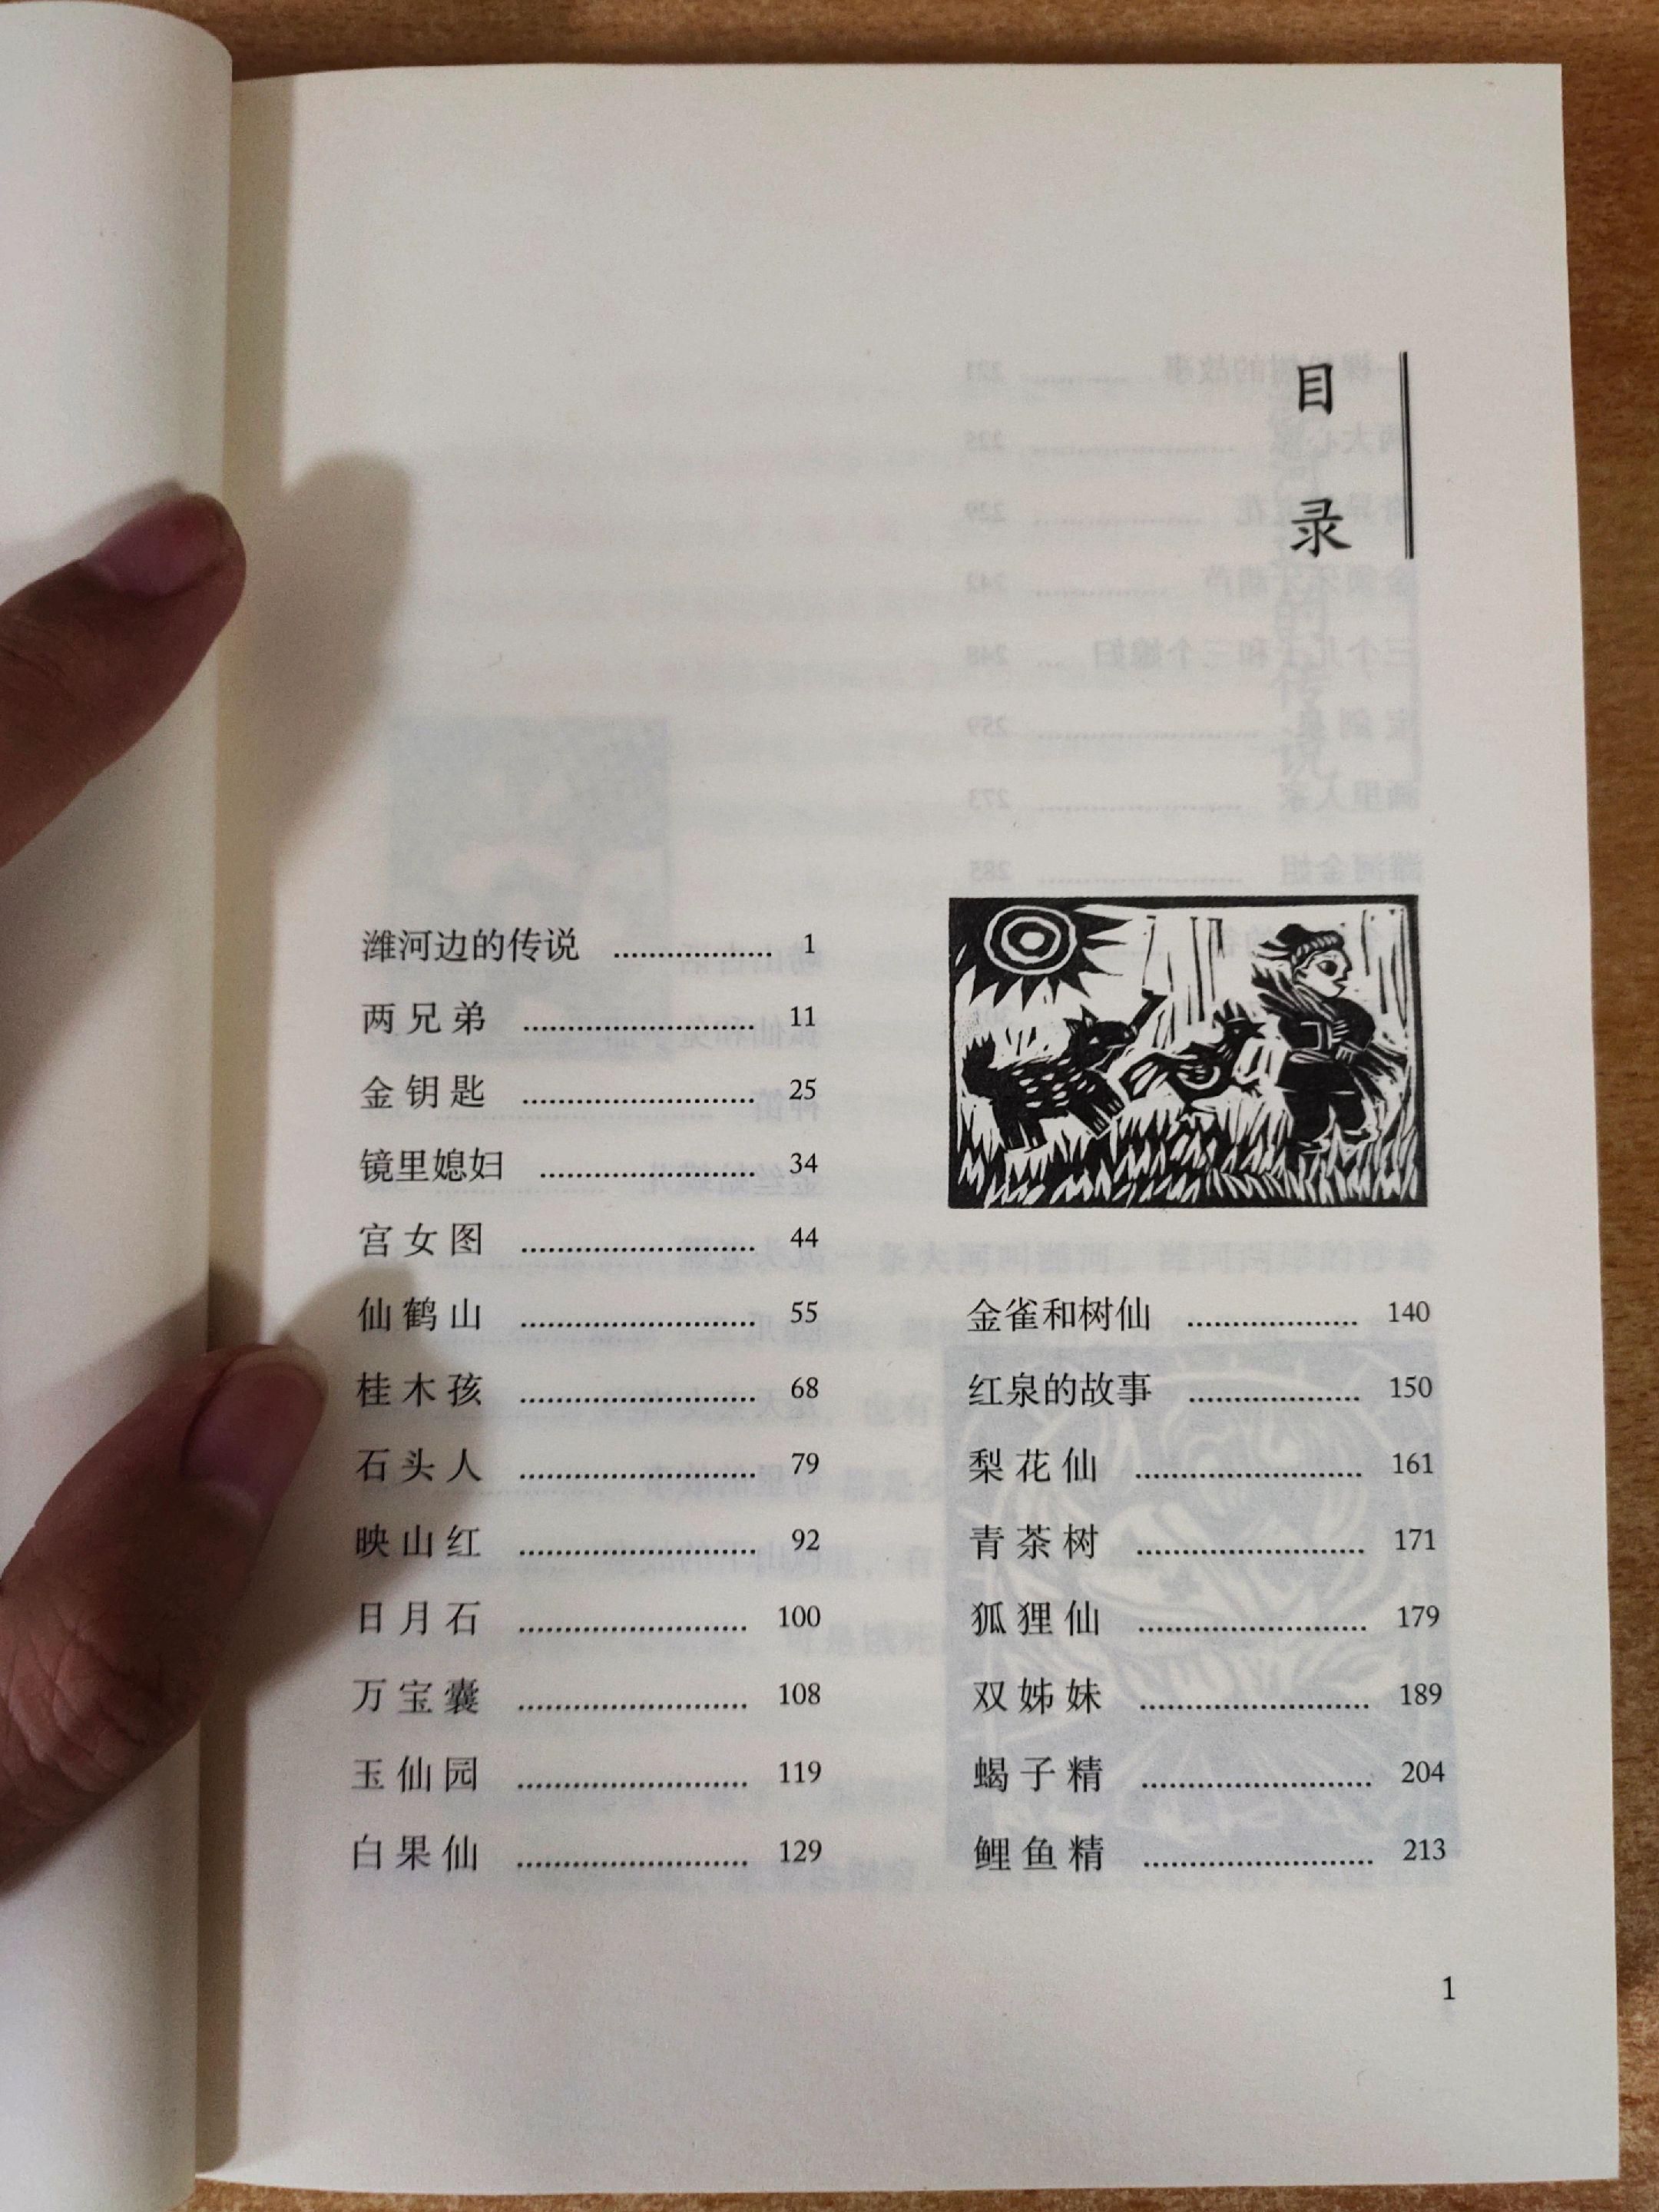 目录
潍河边的传说 ………………… 1
两兄弟 ………………… 11
金钥匙 ………………… 25
镜里媳妇 ………………… 34
宫女图 ………………… 44
仙鹤山 ………………… 55
桂木孩 ………………… 68
石头人 ………………… 79
映山红 ………………… 92
日月石 ………………… 100
万宝囊 ………………… 108
玉仙园 ………………… 119
白果仙 ………………… 129
金雀和树仙 ………………… 140
红泉的故事 ………………… 150
梨花仙 ………………… 161
青茶树 ………………… 171
狐狸仙 ………………… 179
双姊妹 ………………… 189
蝎子精 ………………… 204
鲤鱼精 ………………… 213
1